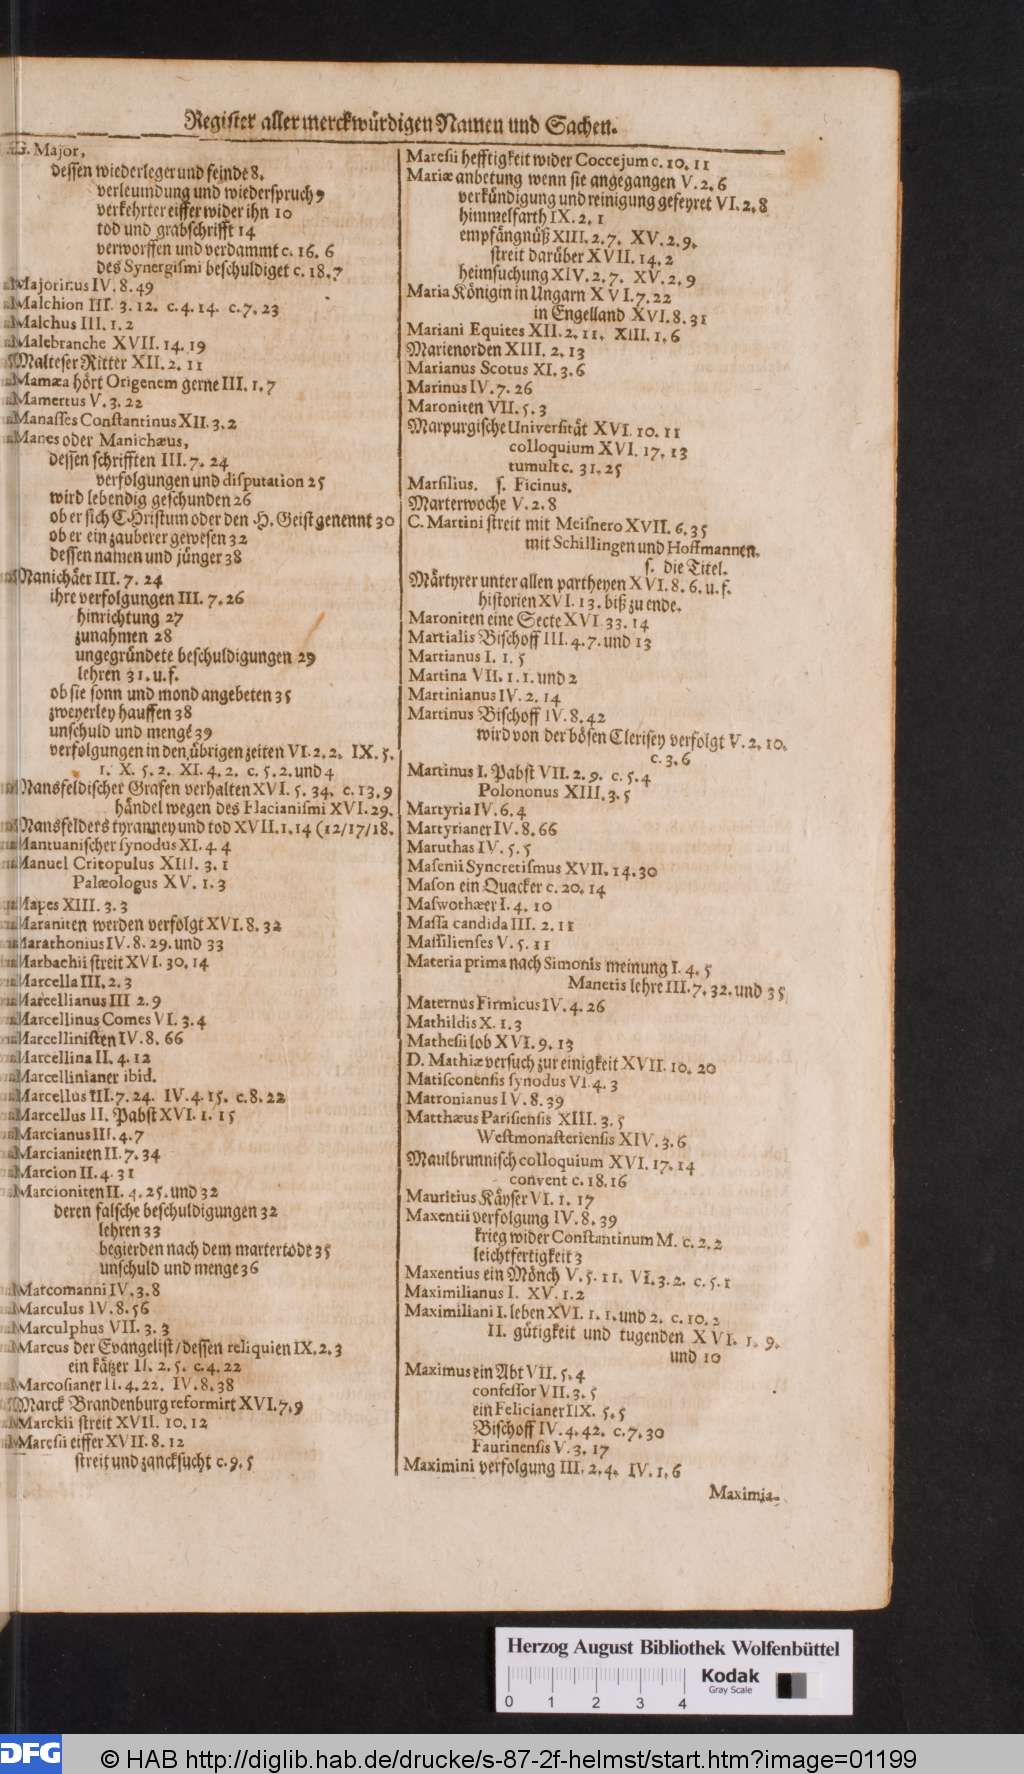 Register aller merckwürdigen Namen und Sachen.
G. Major,
dessen wiederleger und feinde 8.
verleumdung und wiederspruch 9
verkehrter eiffer wider ihn 10
tod und grabschrifft 14
verworffen und verdammt c. 16. 6
des Synergismi beschuldiget c. 18. 7
Majorinus IV. 8. 49
Malchion III. 3. 12. c. 4. 14. c. 7. 23
Malchus III. 1. 2
Malebranche XVII. 14. 19
Malteser Ritter XII. 2. 11
Mamæa hört Origenem gerne III. 1. 7
Mamertus V. 3. 22
Manasses Constantinus XII. 3. 2
Manes oder Manichæus,
dessen schrifften III. 7. 24
verfolgungen und disputation 25
wird lebendig geschunden 26
ob er sich CHristum oder den H. Geist genennt 30
ob er ein zauberer gewesen 32
dessen namen und jünger 38
Manichäer III. 7. 24
ihre verfolgungen III. 7. 26
hinrichtung 27
zunahmen 28
ungegründete beschuldigungen 29
lehren 31. u. f.
ob sie sonn und mond angebeten 35
zweyerley hauffen 38
unschuld und menge 39
verfolgungen in den übrigen zeiten VI. 2. 2. IX. 5.
1. X. 5. 2. XI. 4. 2. c. 5. 2. und 4
Mansfeldischer Grafen verhalten XVI. 5. 34. c. 13. 9
händel wegen des Flacianismi XVI. 29.
Mansfelders tyranney und tod XVII. 1. 14 (12/17/18.
Mantuanischer synodus XI. 4. 4
Manuel Critopulus XIII. 3. 1
Palæologus XV. 1. 3
Mapes XIII. 3. 3
Maraniten werden verfolgt XVI. 8. 32
Marathonius IV. 8. 29. und 33
Marbachii streit XVI. 30. 14
Marcella III. 2. 3
Marcellianus III 2. 9
Marcellinus Comes VI. 3. 4
Marcellinisten IV. 8. 66
Marcellina II. 4. 12
Marcellinianer ibid.
Marcellus III. 7. 24. IV. 4. 15. c. 8. 22
Marcellus II. Pabst XVI. 1. 15
Marcianus III. 4. 7
Marcianiten II. 7. 34
Marcion II. 4. 31
Marcioniten II. 4. 25. und 32
deren falsche beschuldigungen 32
lehren 33
begierden nach dem martertode 35
unschuld und menge 36
Marcomanni IV. 3. 8
Marculus IV. 8. 56
Marculphus VII. 3. 3
Marcus der Evangelist/ dessen reliquien IX. 2. 3
ein kätzer II. 2. 5. c. 4. 22
Marcosianer II. 4. 22. IV. 8. 38
Marck Brandenburg reformirt XVI. 7. 9
Marckii streit XVII. 10. 12
Maresii eiffer XVII. 8. 12
streit und zancksucht c. 9. 5
Maresii hefftigkeit wider Coccejum c. 10. 11
Mariæ anbetung wenn sie angegangen V. 2. 6
verkündigung und reinigung gefeyret VI. 2. 8
himmelfarth IX. 2. 1
empfängnüß XIII. 2. 7. XV. 2. 9.
streit darüber XVII. 14. 2
heimsuchung XIV. 2. 7. XV. 2. 9
Maria Königin in Ungarn XVI. 7. 22
in Engelland XVI. 8. 31
Mariani Equites XII. 2. 11. XIII. 1. 6
Marienorden XIII. 2. 13
Marianus Scotus XI. 3. 6
Marinus IV. 7. 26
Maroniten VII. 5. 3
Marpurgische Universität XVI. 10. 11
colloquium XVI. 17. 13
tumult c. 31. 25
Marsilius. s. Ficinus.
Marterwoche V. 2. 8
C. Martini streit mit Meisnero XVII. 6. 35
mit Schillingen und Hoffmannen.
s. die Titel.
Märtyrer unter allen partheyen XVI. 8. 6. u. f.
historien XVI. 13. biß zu ende.
Maroniten eine Secte XVI 33. 14
Martialis Bischoff III. 4. 7. und 13
Martianus I. 1. 5
Martina VII. 1. 1. und 2
Martinianus IV. 2. 14
Martinus Bischoff IV. 8. 42
wird von der bösen Clerisey verfolgt V. 2. 10.
c. 3. 6
Martinus I. Pabst VII. 2. 9. c. 5. 4
Polononus XIII. 3. 5
Martyria IV. 6. 4
Martyrianer IV. 8. 66
Maruthas IV. 5. 5
Masenii Syncretismus XVII. 14. 30
Mason ein Quacker c. 20. 14
Maswothæer I. 4. 10
Massa candida III. 2. 11
Massilienses V. 5. 11
Materia prima nach Simonis meinung I. 4. 5
Manetis lehre III. 7. 32. und 35
Maternus Firmicus IV. 4. 26
Mathildis X. 1. 3
Mathesii lob XVI. 9. 13
D. Mathiæ versuch zur einigkeit XVII. 10. 20
Matisconensis synodus VI. 4. 3
Matronianus IV. 8. 39
Matthæus Parisiensis XIII. 3. 5
Westmonasteriensis XIV. 3. 6
Maulbrunnisch colloquium XVI. 17. 14
convent c. 18. 16
Mauritius Käyser VI. 1. 17
Maxentii verfolgung IV. 8. 39
krieg wider Constantinum M. c. 2. 2
leichtfertigkeit 3
Maxentius ein Mönch V. 5. 11. VI. 3. 2. c. 5. 1
Maximilianus I. XV. 1. 2
Maximiliani I. leben XVI. 1. 1. und 2. c. 10. 2
II. gütigkeit und tugenden XVI. 1. 9.
und 10
Maximus ein Abt VII. 5. 4
confessor VII. 3. 5
ein Felicianer IIX. 5. 5
Bischoff IV. 4. 42. c. 7. 30
Faurinensis V. 3. 17
Maximini verfolgung III. 2. 4. IV. 1. 6
Maximia-
Herzog August Bibliothek Wolfenbüttel
0 1 2 3 4
Kodak
Gray Scale
DFG
© HAB http://diglib.hab.de/drucke/s-87-2f-helmst/start.htm?image=01199